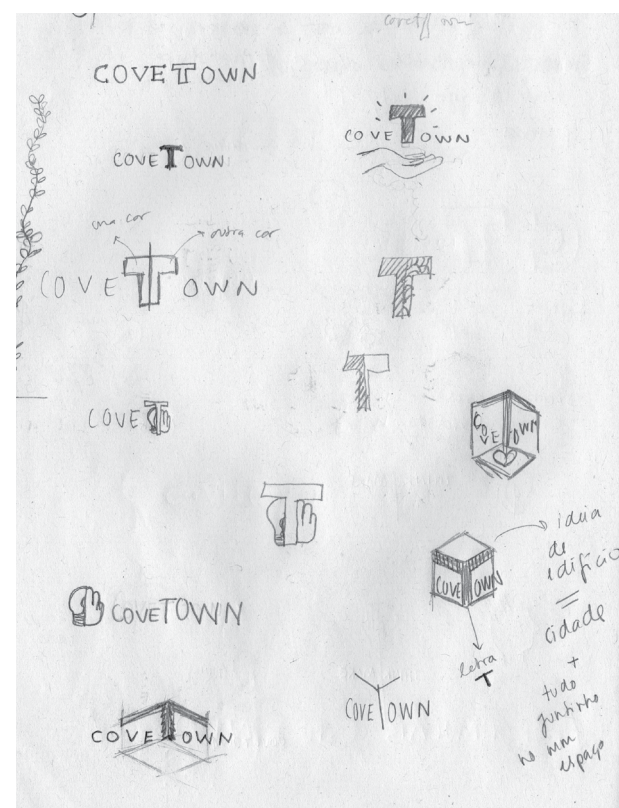 COVETTOWN
COVETOWN
COVETOWN
uma cor
outra cor
COVETOWN
COVET
COVE OWN
ideia
de
edifício
=
cidade
+
tudo
juntinho
no mm
espaço
COVE OWN
letra
T
COVETOWN
COVETOWN
COVETOWN